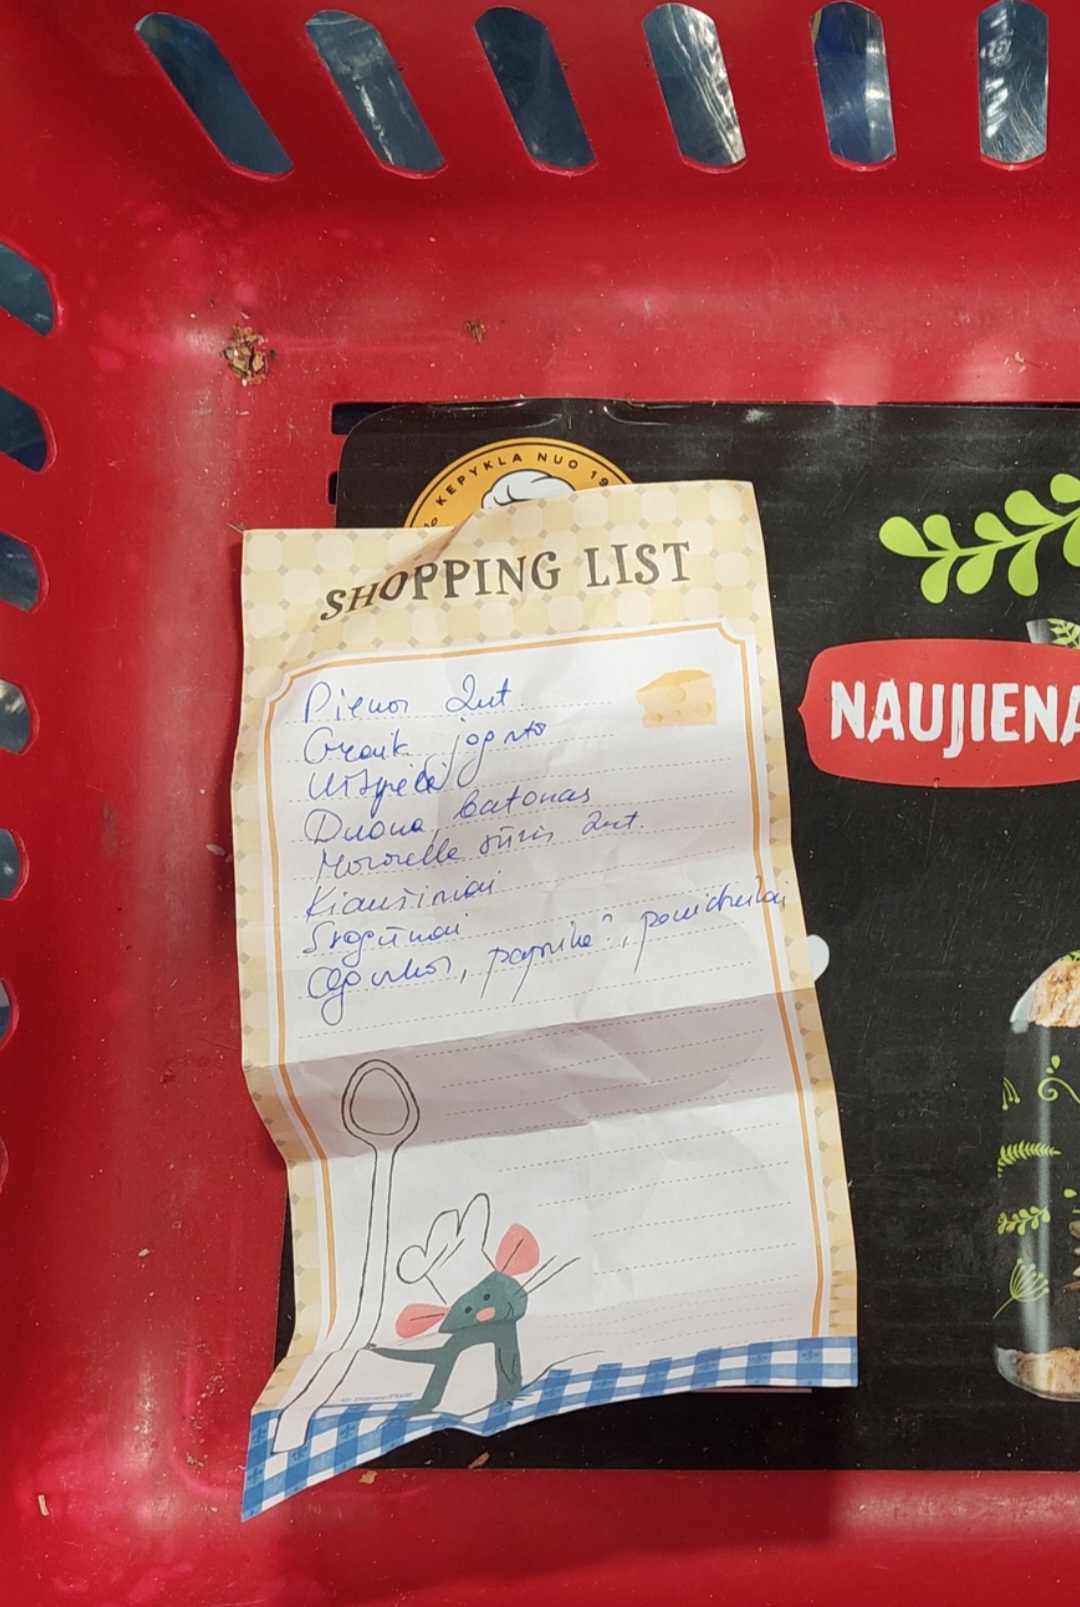 KEPYKLA NUO 19
SHOPPING LIST
Pienas 2vt.
Graik. jogurto
Duona, batonas
Mozzarella sūris 2vt.
Kiaušiniai
Svogūnai
Agurkas, paprika?, pomidorai
NAUJIENA